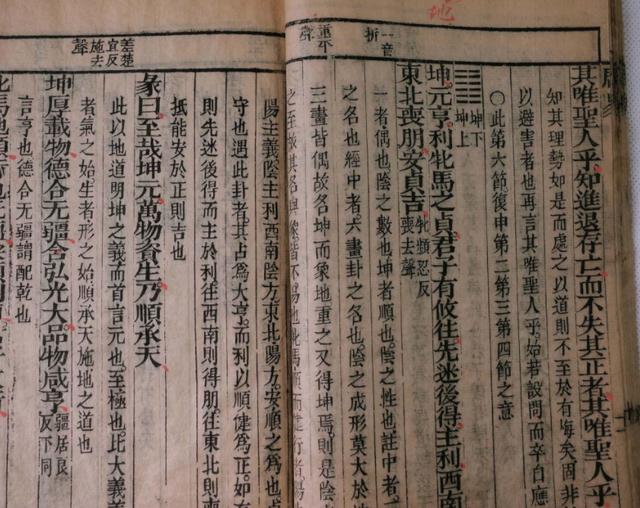 地
周易
其唯聖人乎知進退存亡而不失其正者其唯聖人乎
知其理勢如是而處之以道則不至於有悔矣固非
以避害者也再言其唯聖人乎始若設問而卒自應
○此第六節復申第二第三第四節之意
坤下
坤上
坤元亨利牝馬之貞君子有攸往先迷後得主利西南
東北喪朋安貞吉
牝頻忍反
喪去聲
一者偶也陰之數也坤者順也陰之性也註中者
之名也經中者六畫卦之名也陰之成形莫大於地
三畫皆偶故名坤而象地重之又得坤焉則是陰
陽主義陰主利西南陰方東北陽方安順之為也
守也遇此卦者其占為大亨而利以順健為正如有
則先迷後得而主於利往西南則得朋往東北則
抵能安於正則吉也
彖曰至哉坤元萬物資生乃順承天
此以地道明坤之義而首言元也至極也比大義
者氣之始生者形之始順承天施地之道也
坤厚載物德合无疆含弘光大品物咸亨
疆居良
反下同
言亨也德合无疆謂配乾也
一音
折
重平
聲
差楚
宜反
施去
聲